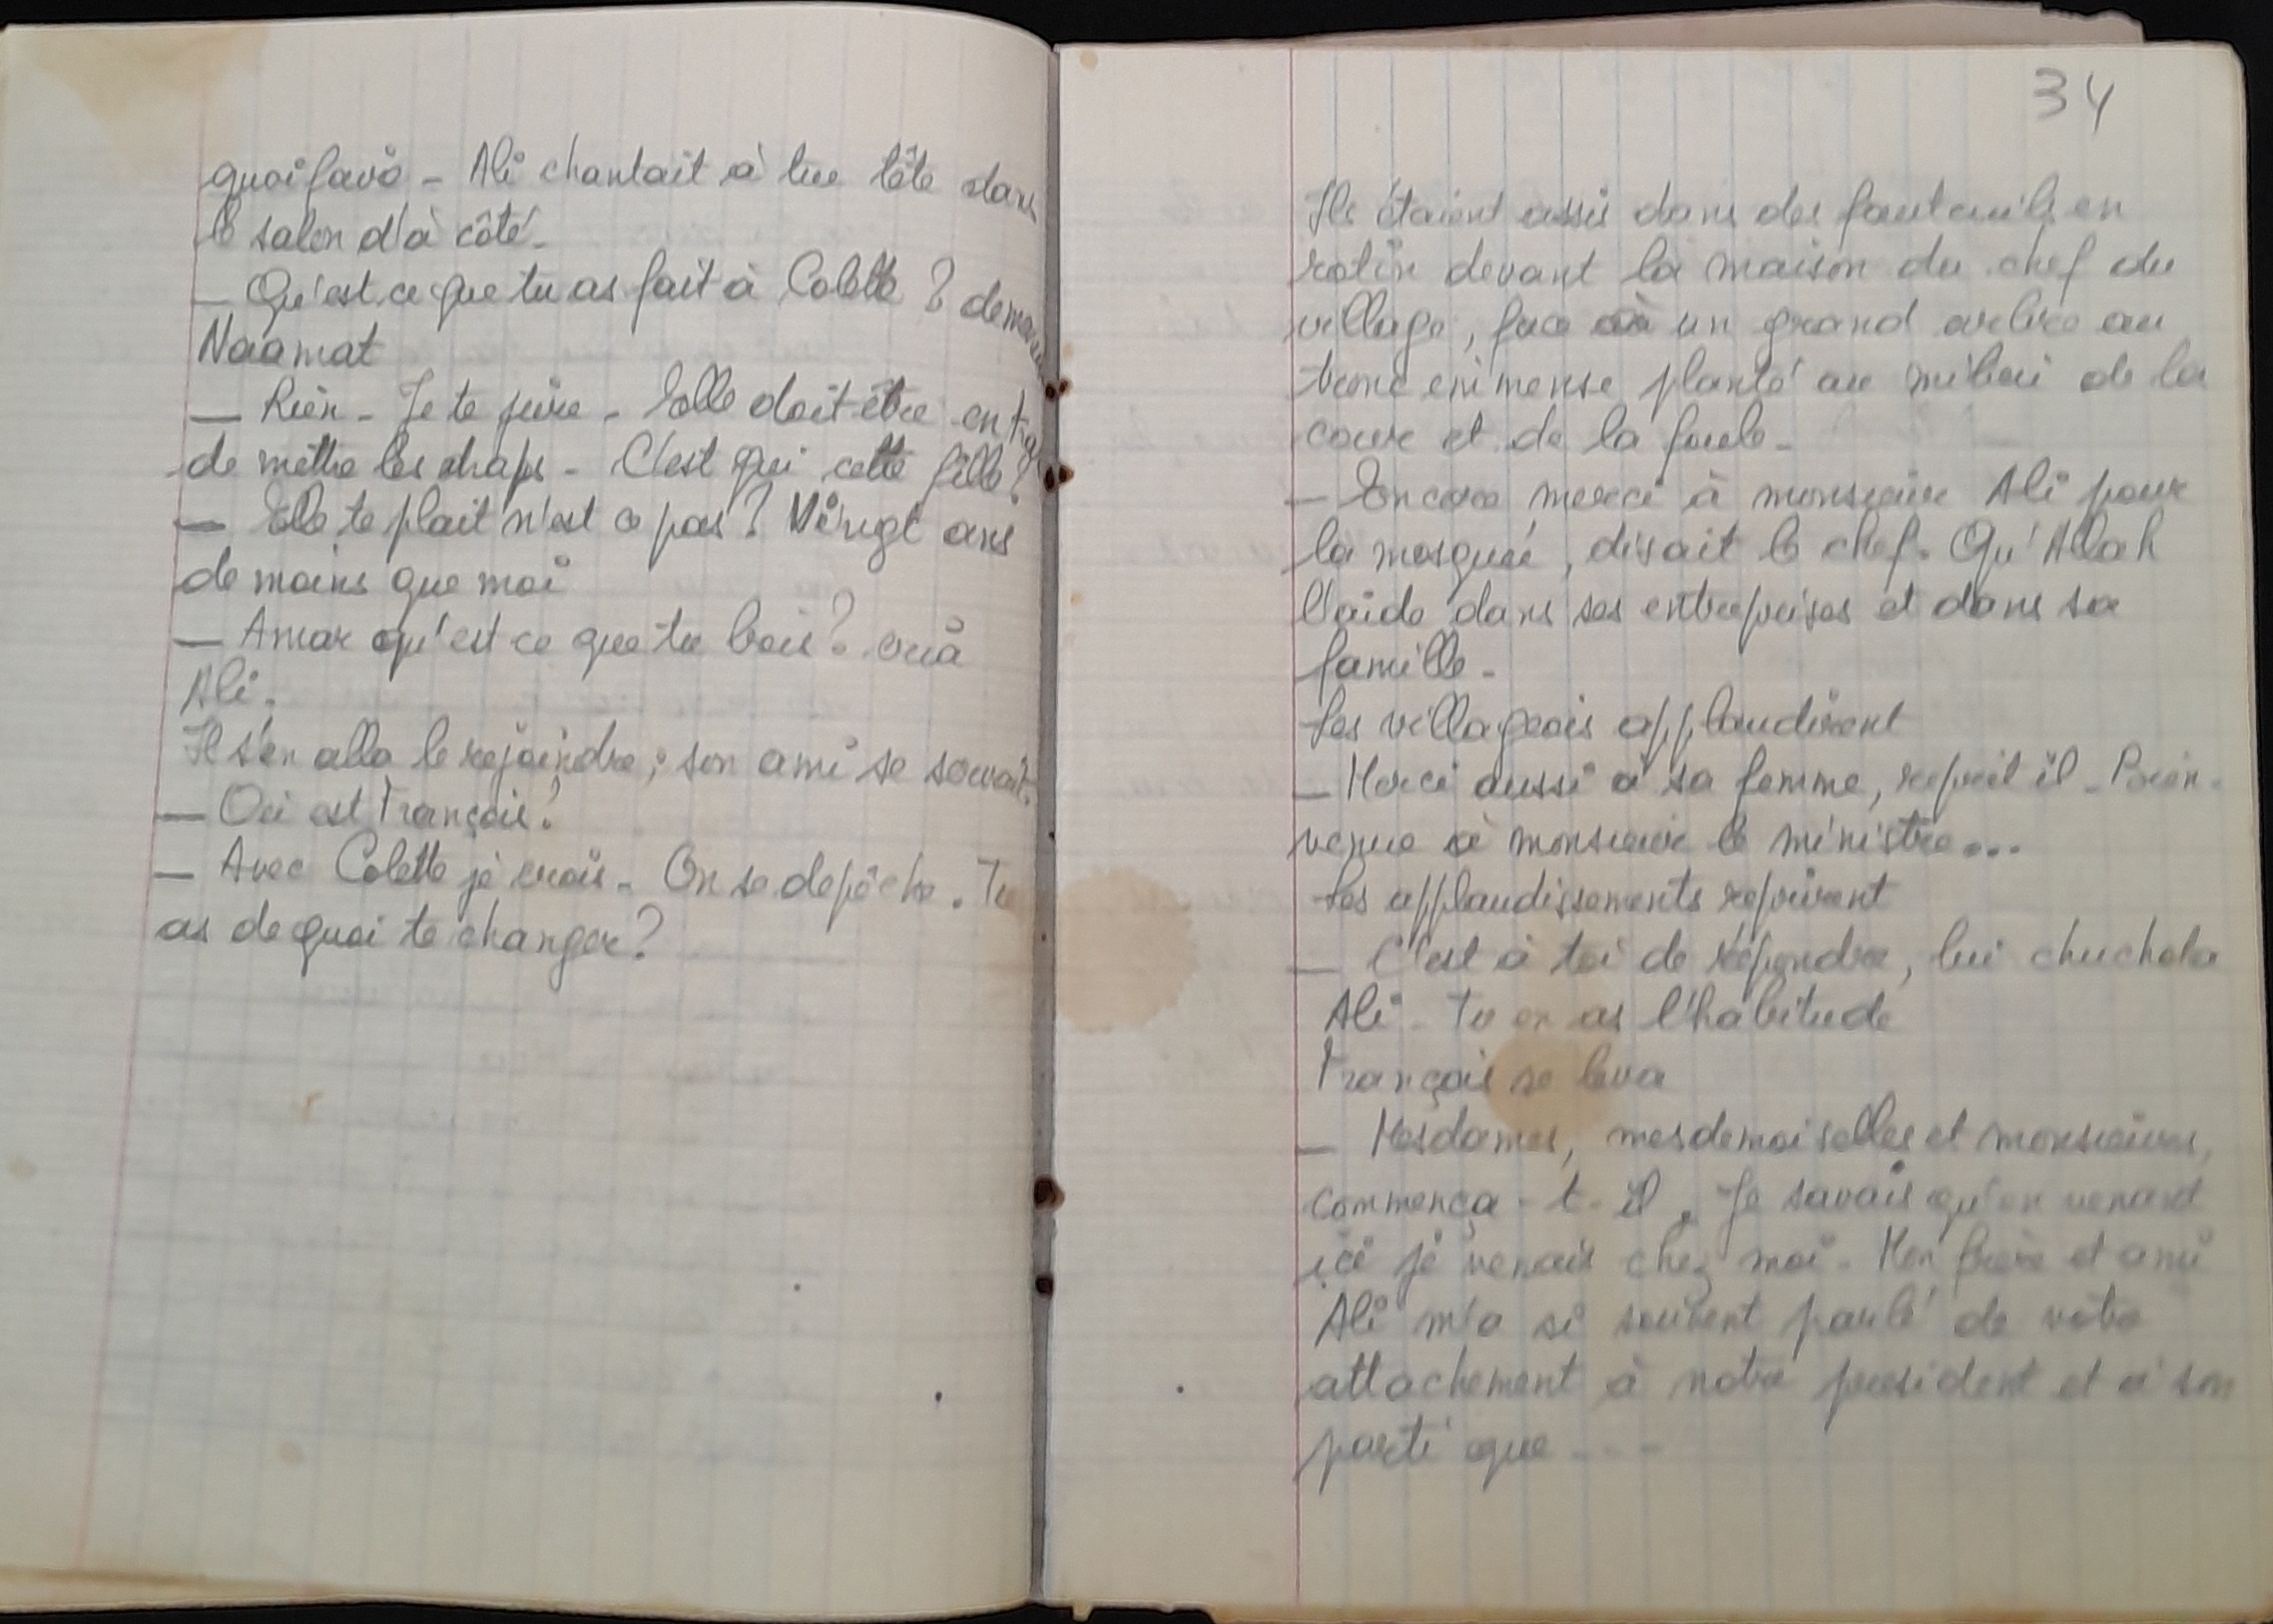 quoi favo - Ali chantait à tue tête dans
le salon d'à côté -
— Qu'est ce que tu as fait à Colette ? deman
Naamat
— Rien - Je te jure - Elle doit être en tra
de mettre les draps - C'est qui cette fille ?
— Elle te plait n'est ce pas ? Vingt ans
de moins que moi
— Amar qu'est ce que tu bois ? cria
Ali.
Il s'en alla le rejoindre ; son ami se
— Où est François ?
— Avec Colette je crois - On se depêche. Tu
as de quoi te changer ?
34
Ils étaient assis dans des fauteuils en
rotin devant la maison du chef du
village, face à un grand arbre au
tronc immense planté au milieu de la
cour et de la foule -
— Encore merci à monsieur Ali pour
la mosquée, disait le chef. Qu'Allah
l'aide dans ses entreprises et dans sa
famille -
Les villageois applaudirent
— Merci aussi à sa femme, reprit il - Bien -
venue à monsieur le ministre...
Les applaudissements reprirent
— C'est à toi de répondre, lui chuchota
Ali - Tu en as l'habitude
François se leva
— Mesdames, mesdemoiselles et monsieurs,
commença - t - il. Je savais qu'en venant
ici je venais chez moi - Mon frère et ami
Ali m'a si souvent parlé de votre
attachement à notre president et à son
parti que - - -